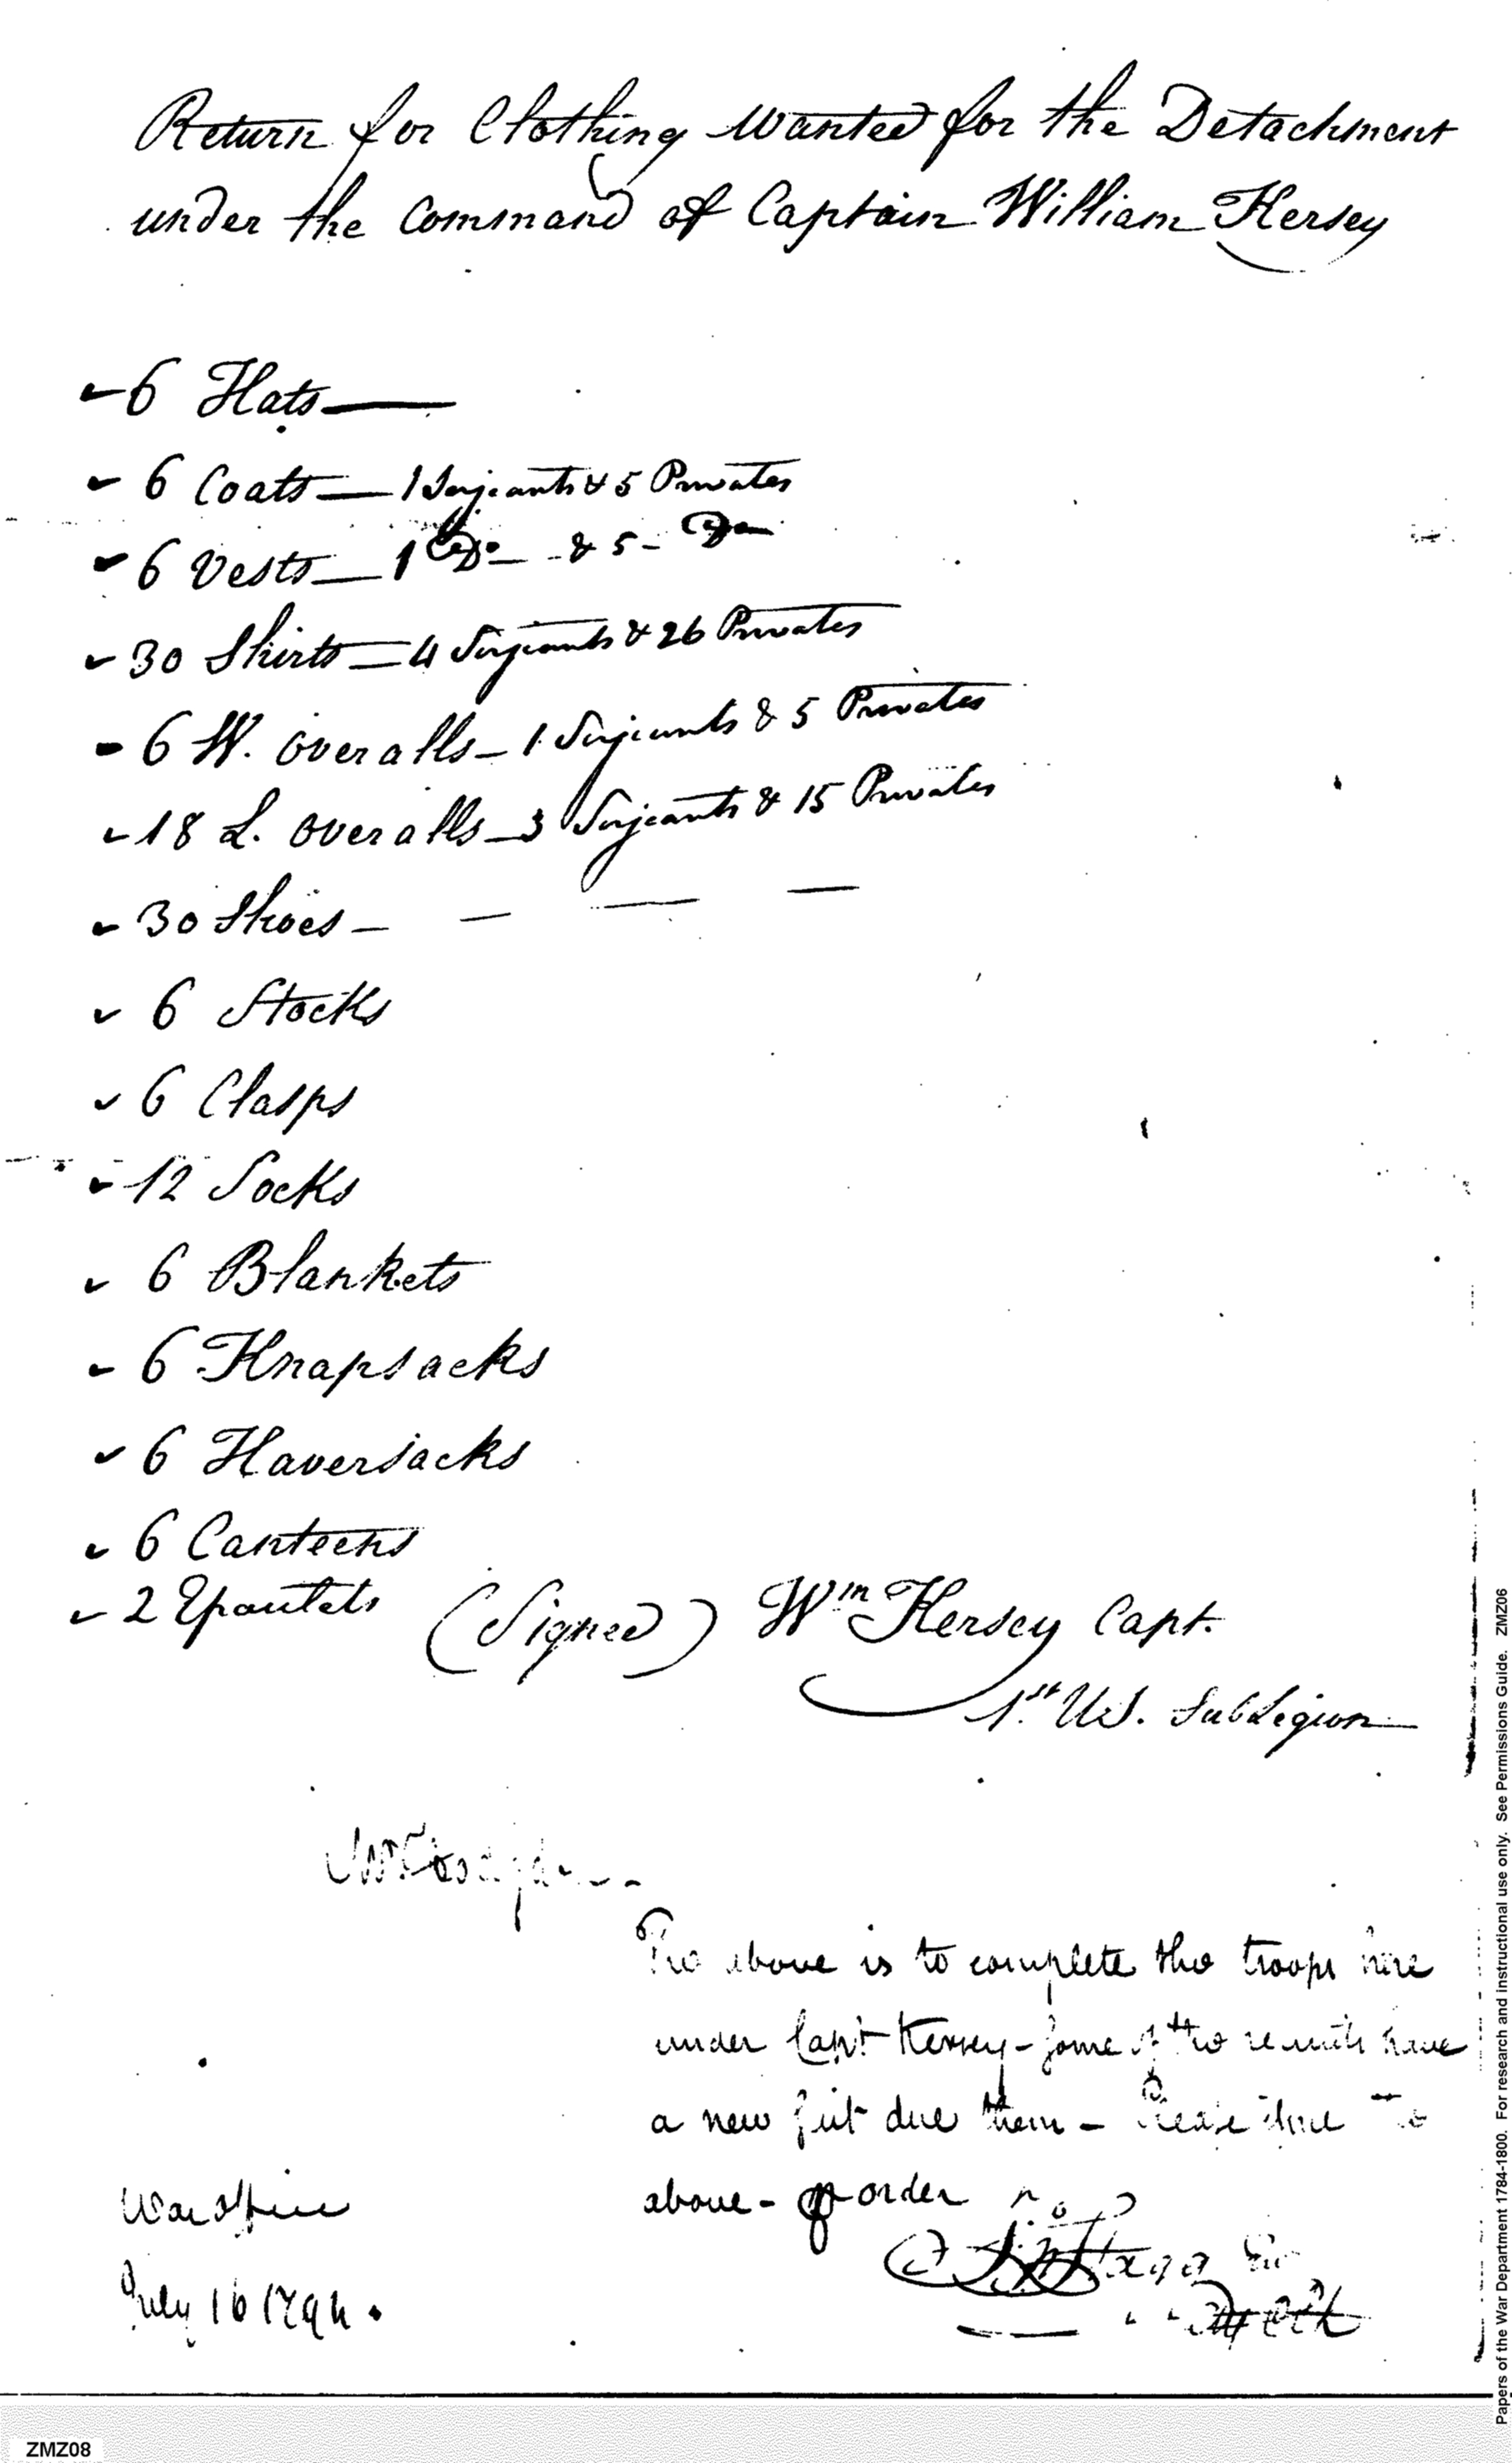 Return for Clothing Wanted for the Detachment
under the Command of Captain William Kersey
6 Hats
6 Coats — 1 Serjeants & 5 Privates
6 Vests — 1 Do — & 5 - Do
30 Shirts — 4 Serjeants & 26 Privates
6 W. overalls — 1 Serjeants & 5 Privates
18 L. overalls — 3 Serjeants & 15 Privates
30 Shoes — — — —
6 Stocks
6 Clasps
12 Socks
6 Blankets
6 Knapsacks
6 Haversacks
6 Canteens
2 Epaulets
(Signed) Wm Kersey Capt.
1st US. SubLegion
The above is to complete the troops here
under Capt Kersey - some of the recruits have
a new suit due them - Please issue the
above - pr order
War Office
July 16 1794.
Papers of the War Department 1784-1800. For research and instructional use only. See Permissions Guide. ZMZ06
ZMZ08